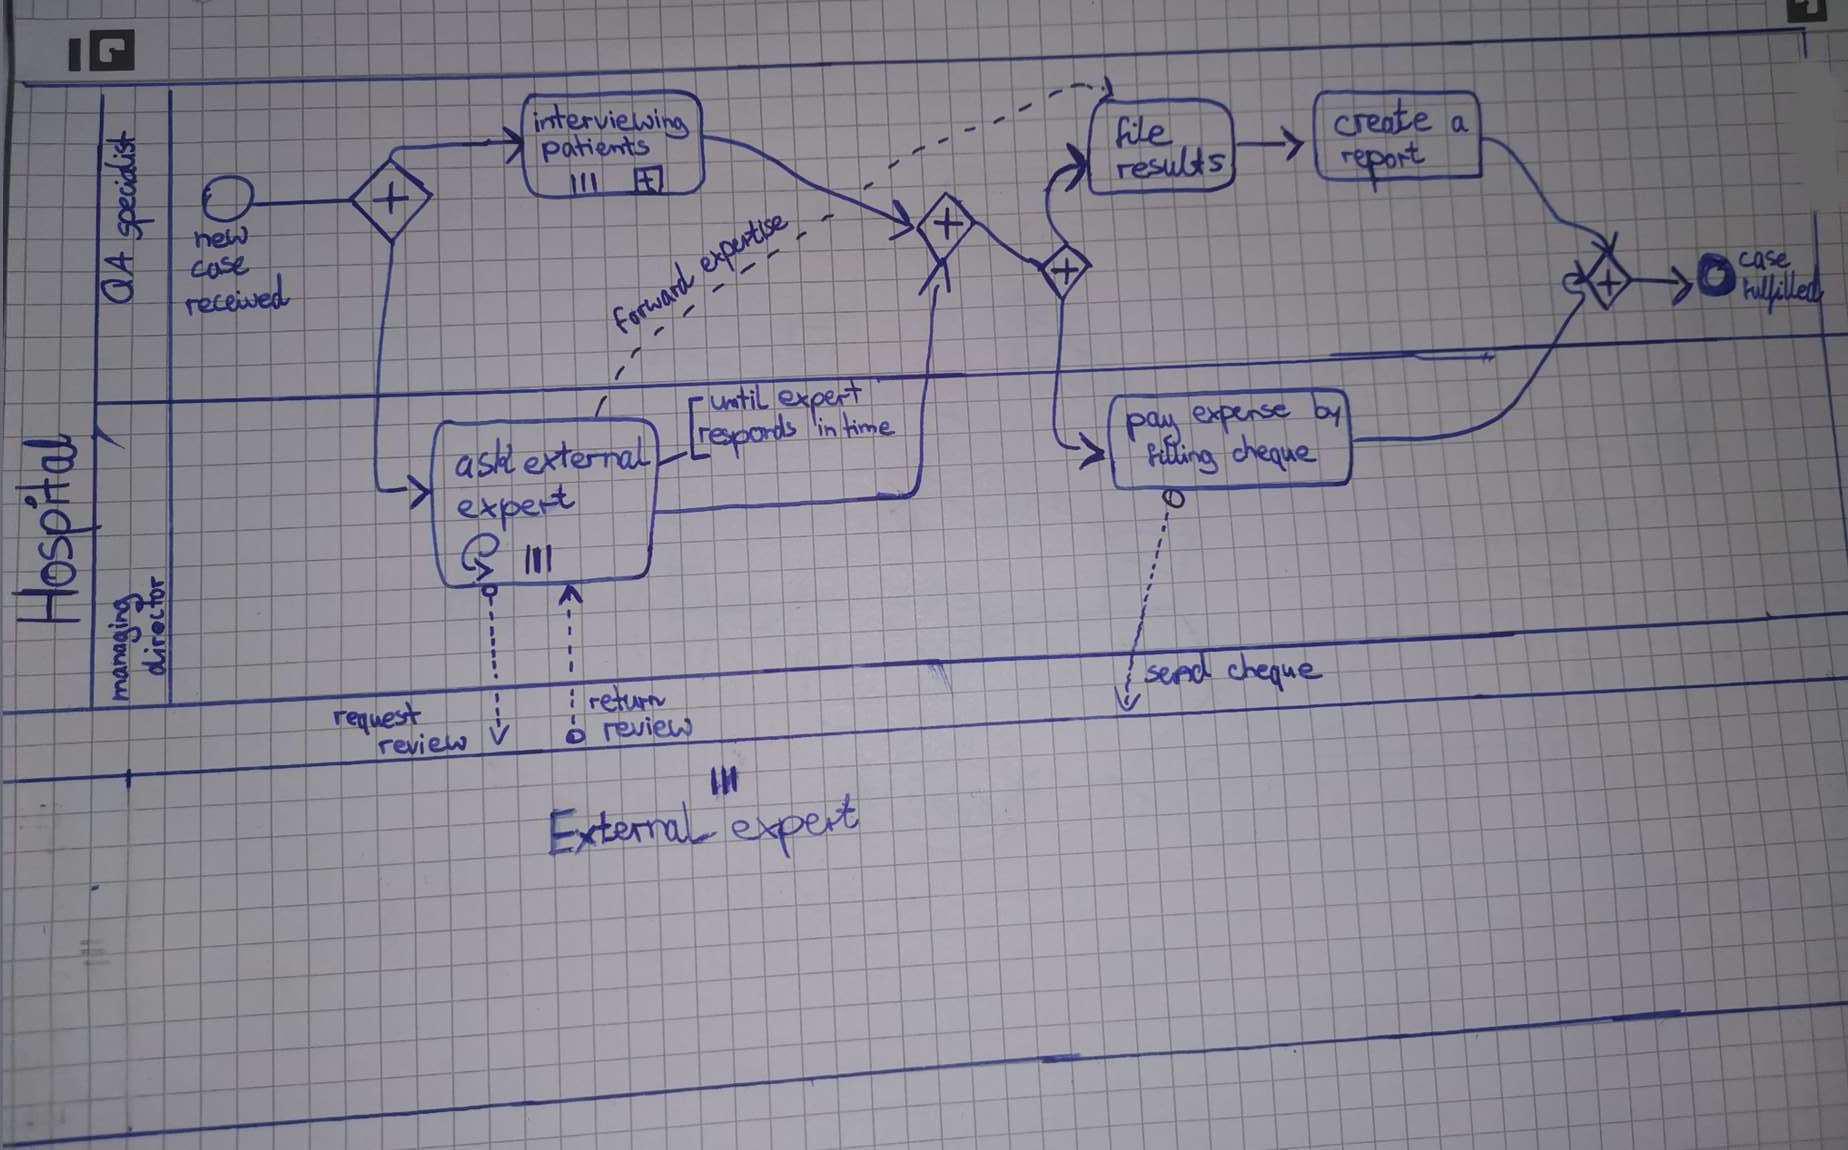 Hospital
QA specialist
managing
director
new
case
received
interviewing
patients
forward expertise
file
results
create a
report
case
fulfilled
until expert
responds in time
ask external
expert
pay expense by
filling cheque
request
review
return
review
send cheque
External expert